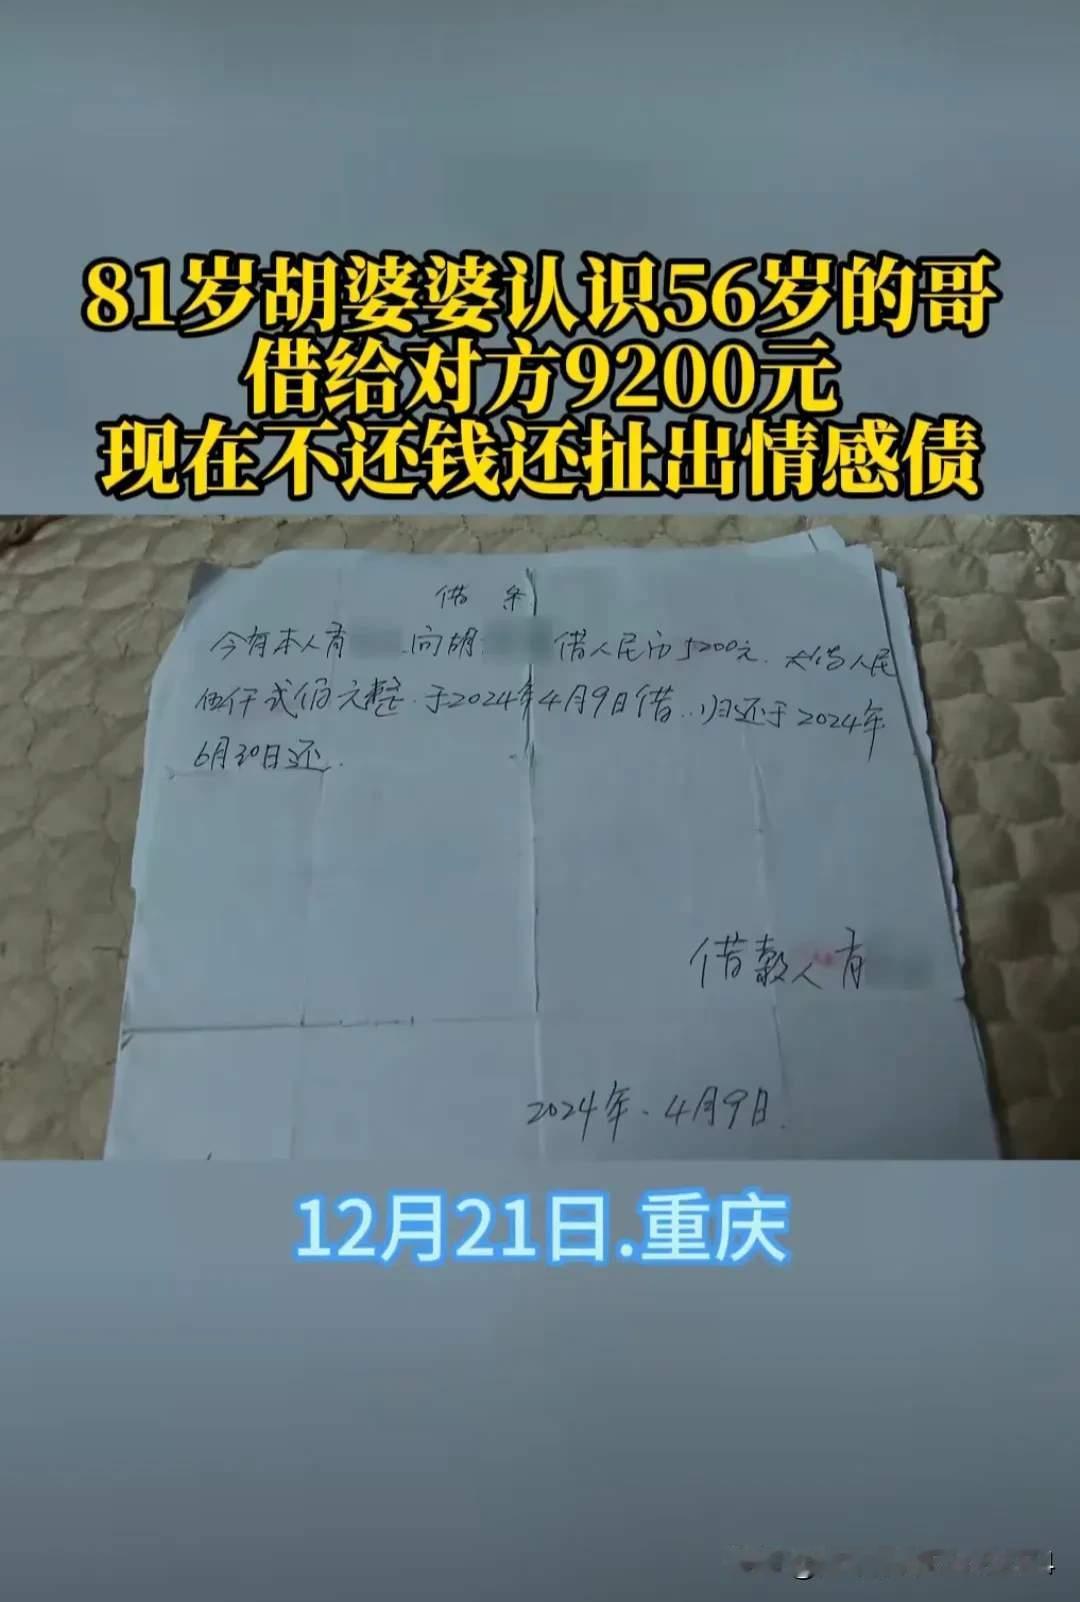 81岁胡婆婆认识56岁的哥
借给对方9200元
现在不还钱还扯出情感债
借 条
今有本人肖 向胡 借人民币5200元. 大写人民
伍仟贰佰元整.于2024年4月9日借..归还于2024年
6月30日还.
借款人肖
2024年.4月9日.
12月21日.重庆